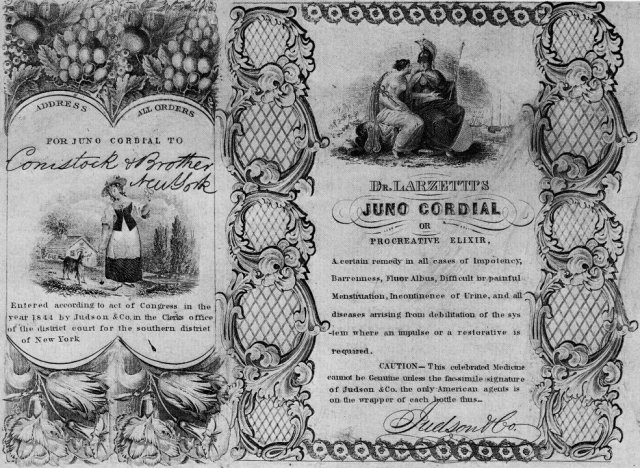 ADDRESS ALL ORDERS
FOR JUNO CORDIAL TO
Comstock & Brother
New York
Entered according to act of Congress in the
year 1844 by Judson & Co. in the Clerks office
of the district court for the southern district
of New York
DR. LARZETTI'S
JUNO CORDIAL
OR
PROCREATIVE ELIXIR,
A certain remedy in all cases of Impotency,
Barrenness, Fluor Albus, Difficult or painful
Menstruation, Incontinence of Urine, and all
diseases arising from debilitation of the sys
-tem where an impulse or a restorative is
required.
CAUTION—This celebrated Medicine
cannot be Genuine unless the fac-simile signature
of Judson & Co. the only American agents is
on the wrapper of each bottle thus...
Judson & Co.